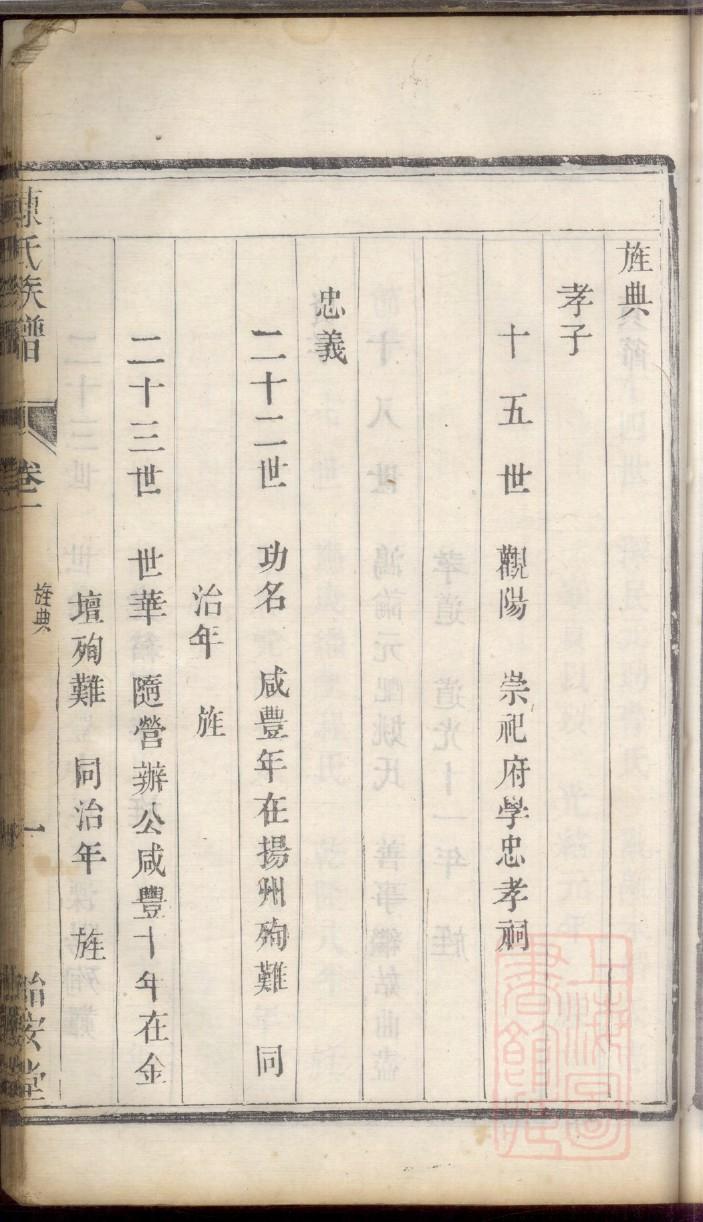 旌典
孝子
十五世 觀陽 崇祀府學忠孝祠
忠義
二十二世 功名 咸豐年在揚州殉難 同
治年 旌
二十三世 世華 隨營辦公咸豐十年在金
壇殉難 同治年 旌
陳氏族譜 卷一 旌典 一 詒安堂
上海圖書館藏